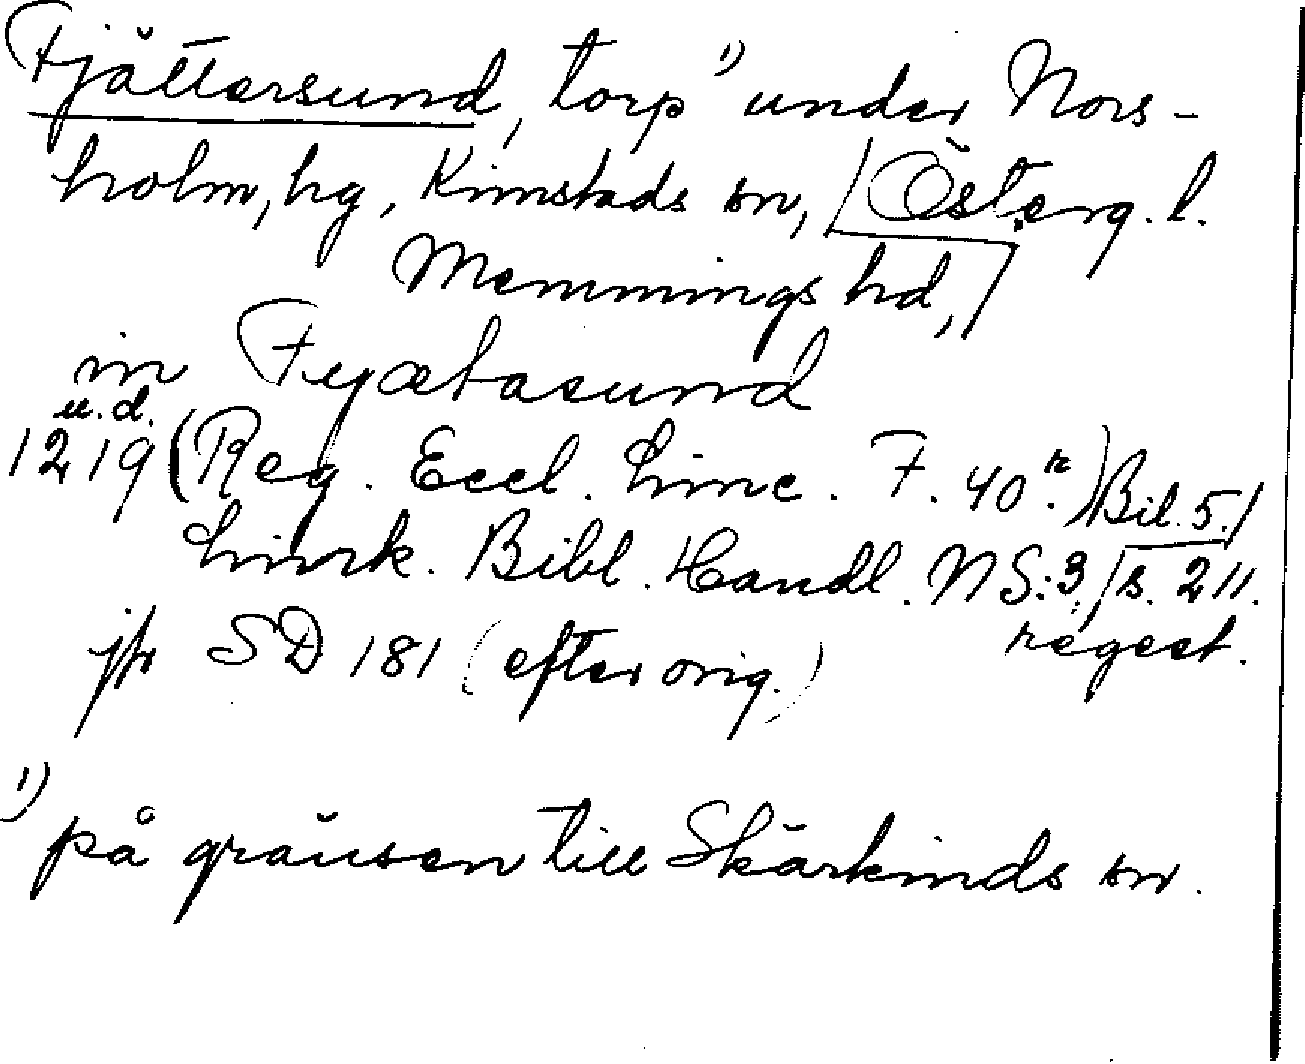 Fjättersund, torp ¹) under Nors-
holm, hg, Kimstads sn, / Österg. l.
Memmings hd, /
in Fyætasund
u.d.
1219 (Reg. Eccl. Linc. F. 40 r.) Bil. 5. /
Linrk. Bibl. Handl. NS:3, / s. 211.
regest.
jfr SD 181 (efter orig.)
¹) på gränsen till Skärkinds sn.